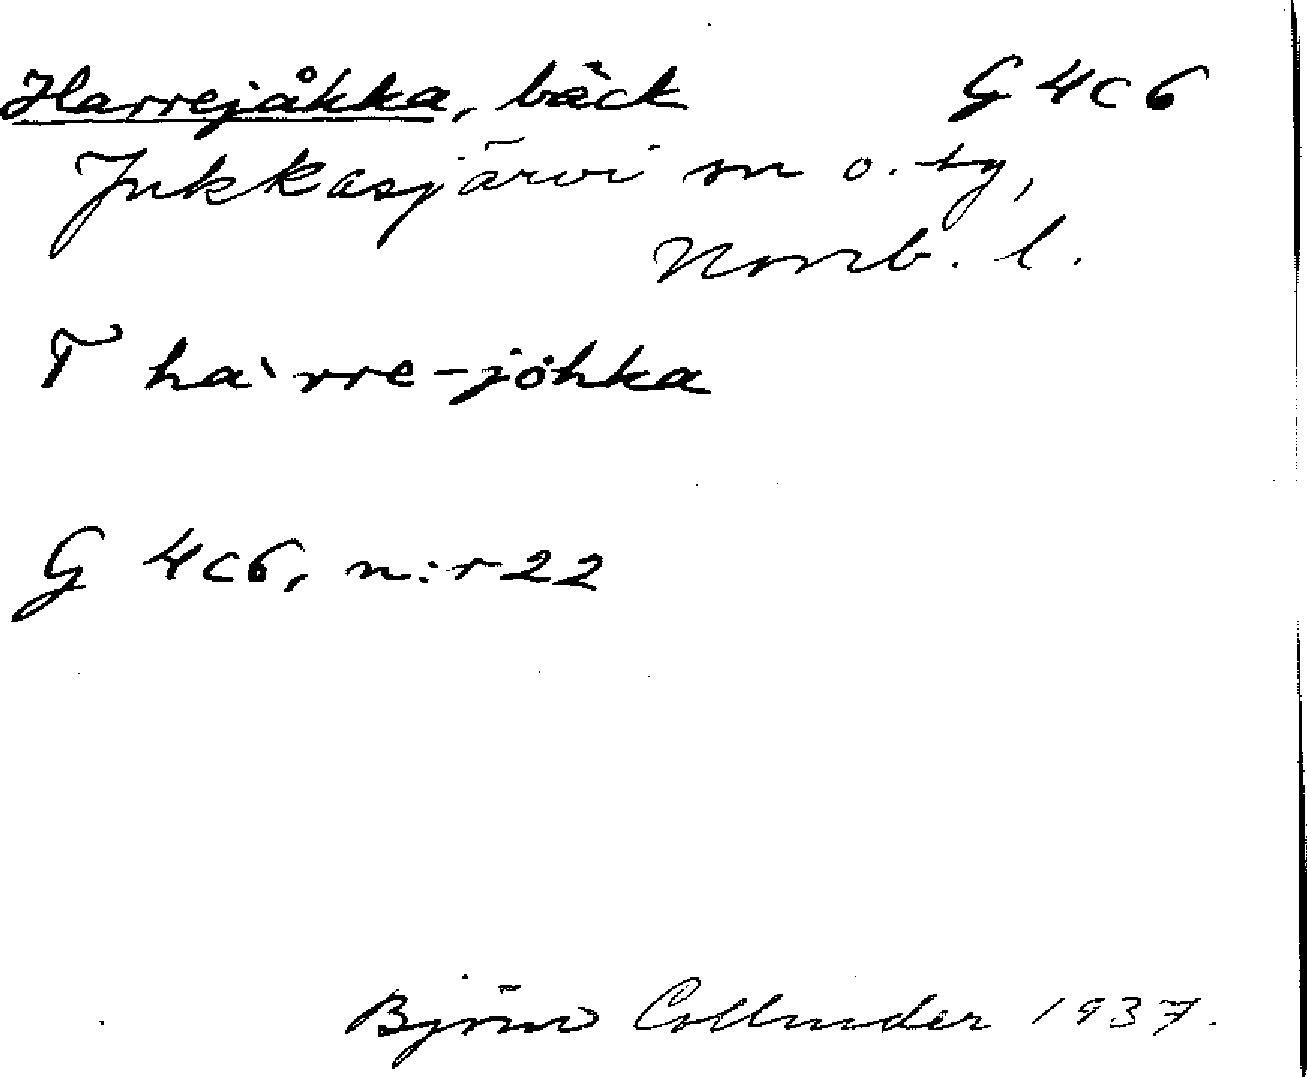 Harrejåkka, bäck G 4c6
Jukkasjärvi sn o. tg,
Norrb. l.
T ha`rre-jöhka
G 4c6, n:r 22
Björn Collinder 1937.